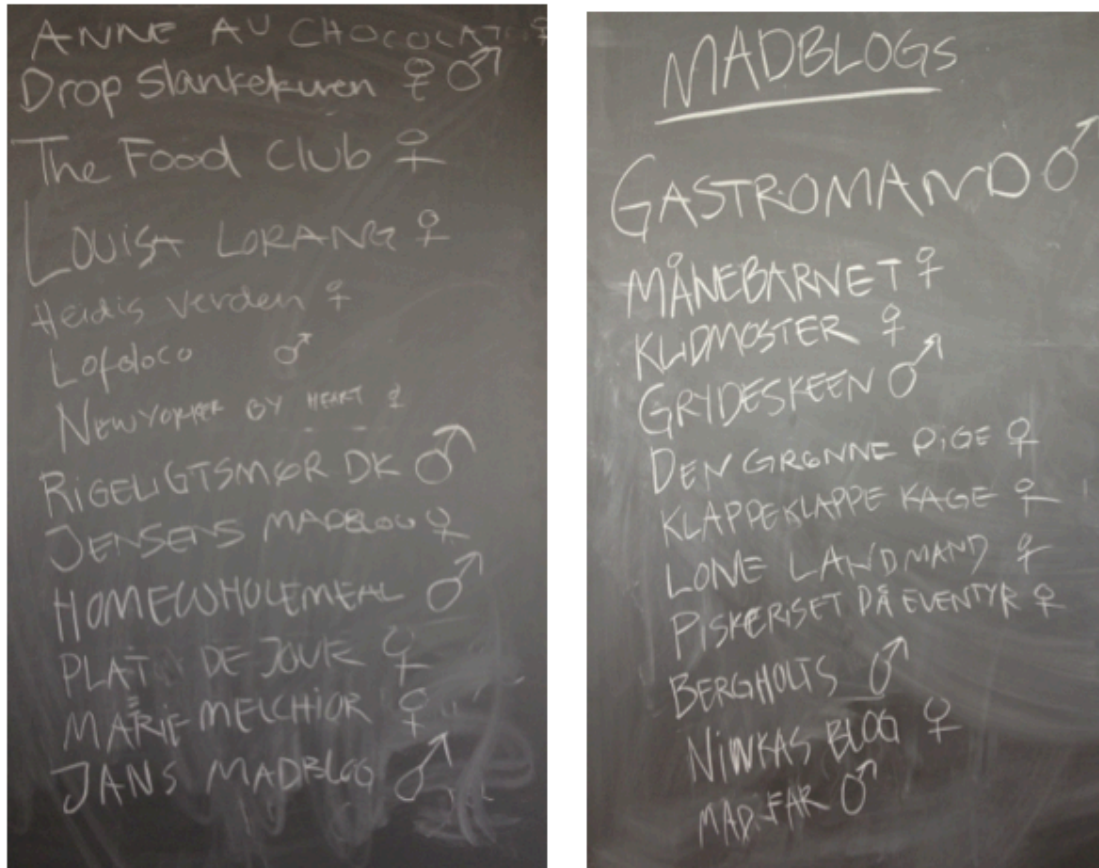 ANNE AU CHOCOLAT ♀
Drop Slankekuren ♀ ♂
The Food Club ♀
LOUISA LORANG ♀
Heidis Verden ♀
Lofoloco ♂
NEWYORKER BY HEART ♀
RIGELIGTSMØR DK ♂
JENSENS MADBLOG ♀
HOMEWHOLEMEAL ♂
PLAT DE JOUR ♀
MARIE MELCHIOR ♀
JANS MADBLOG ♂
MADBLOGS
GASTROMAND ♂
MÅNEBARNET ♀
KLIDMOSTER ♀
GRYDESKEEN ♂
DEN GRØNNE PIGE ♀
KLAPPEKLAPPE KAGE ♀
LONE LANDMAND ♀
PISKERISET PÅ EVENTYR ♀
BERGHOLTS ♂
NINKAS BLOG ♀
MAD.FAR ♂